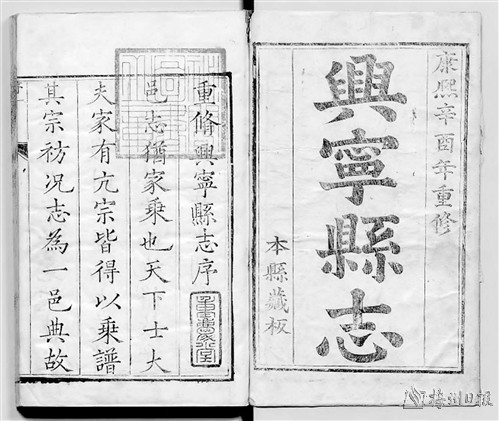 康熙辛酉年重修
興寧縣志
本縣藏板
重脩興寧縣志序
邑志猶家乘也天下士大
夫家有亢宗皆得以乘譜
其宗祊况志為一邑典故
梅州日报